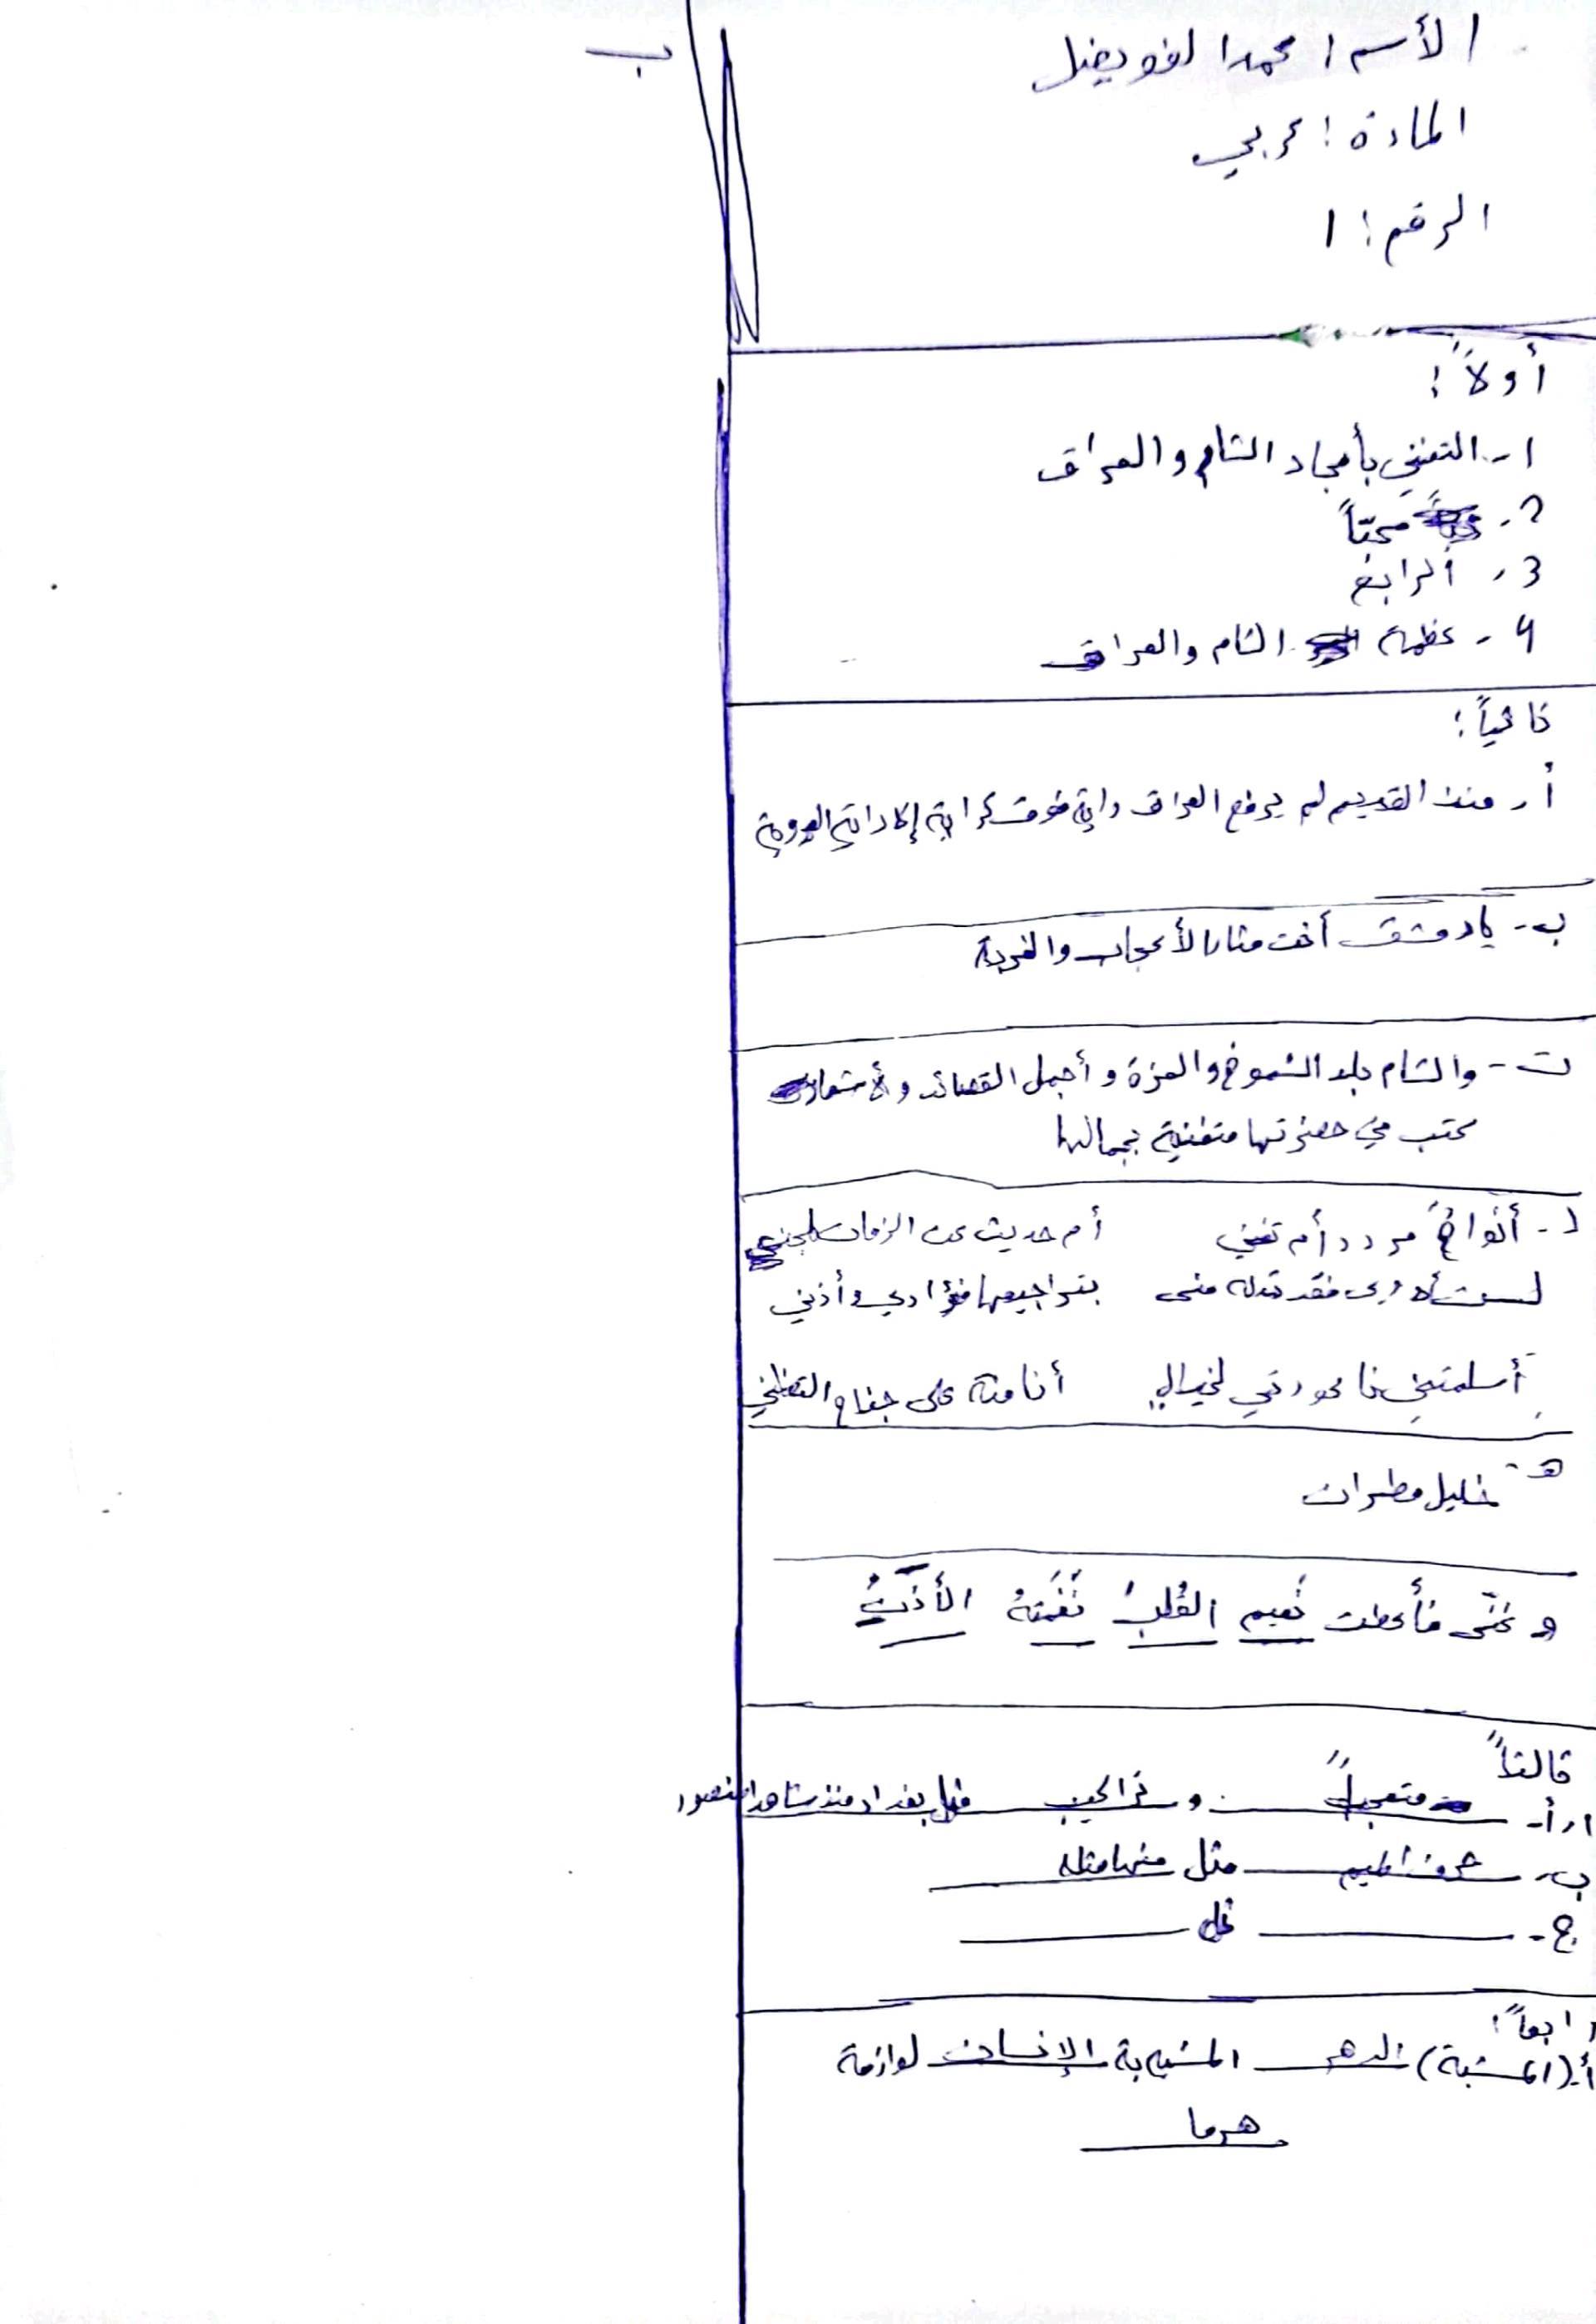 الأسم : محمد الفويضل
ب
المادة : عربي
الرقم : ١
أولاً :
١- التغني بأمجاد الشام والعراق
٢- محبّاً
3- الرابع
٤- عظمة الشام والعراق
ثانياً :
أ- منذ القديم لم يرفع العراق راية فوق راية إلا راية العروبة
ب- يا دمشق أنت منار الأعجاب والفرحة
ت- والشام بلد الشموخ والعزة و أجمل القصائد والأشعار
كتب في حضرتها متغنية بجمالها
د- أنواحٌ مردد أم تغني أم حديث عن الزمان
لست أدري فقد تدله مني بتراجيعها فؤادي وأذني
أسلمتني يا عودتي لخيالي أنا منه على جناح التظني
هـ- خليل مطران
و غنّى فأعطت نعيم القلبُ نَغَمَتهُ الأذنُ
ثالثاً
١. أ- متعجباً و تراكيب مثل بغداد منذ شاهد المنصور
ب- حرف الميم مثل منها مثله
ج- مثل
رابعاً :
أ. (المشبة) الدهر المشبه بة الإنسان لوازمة
هرما